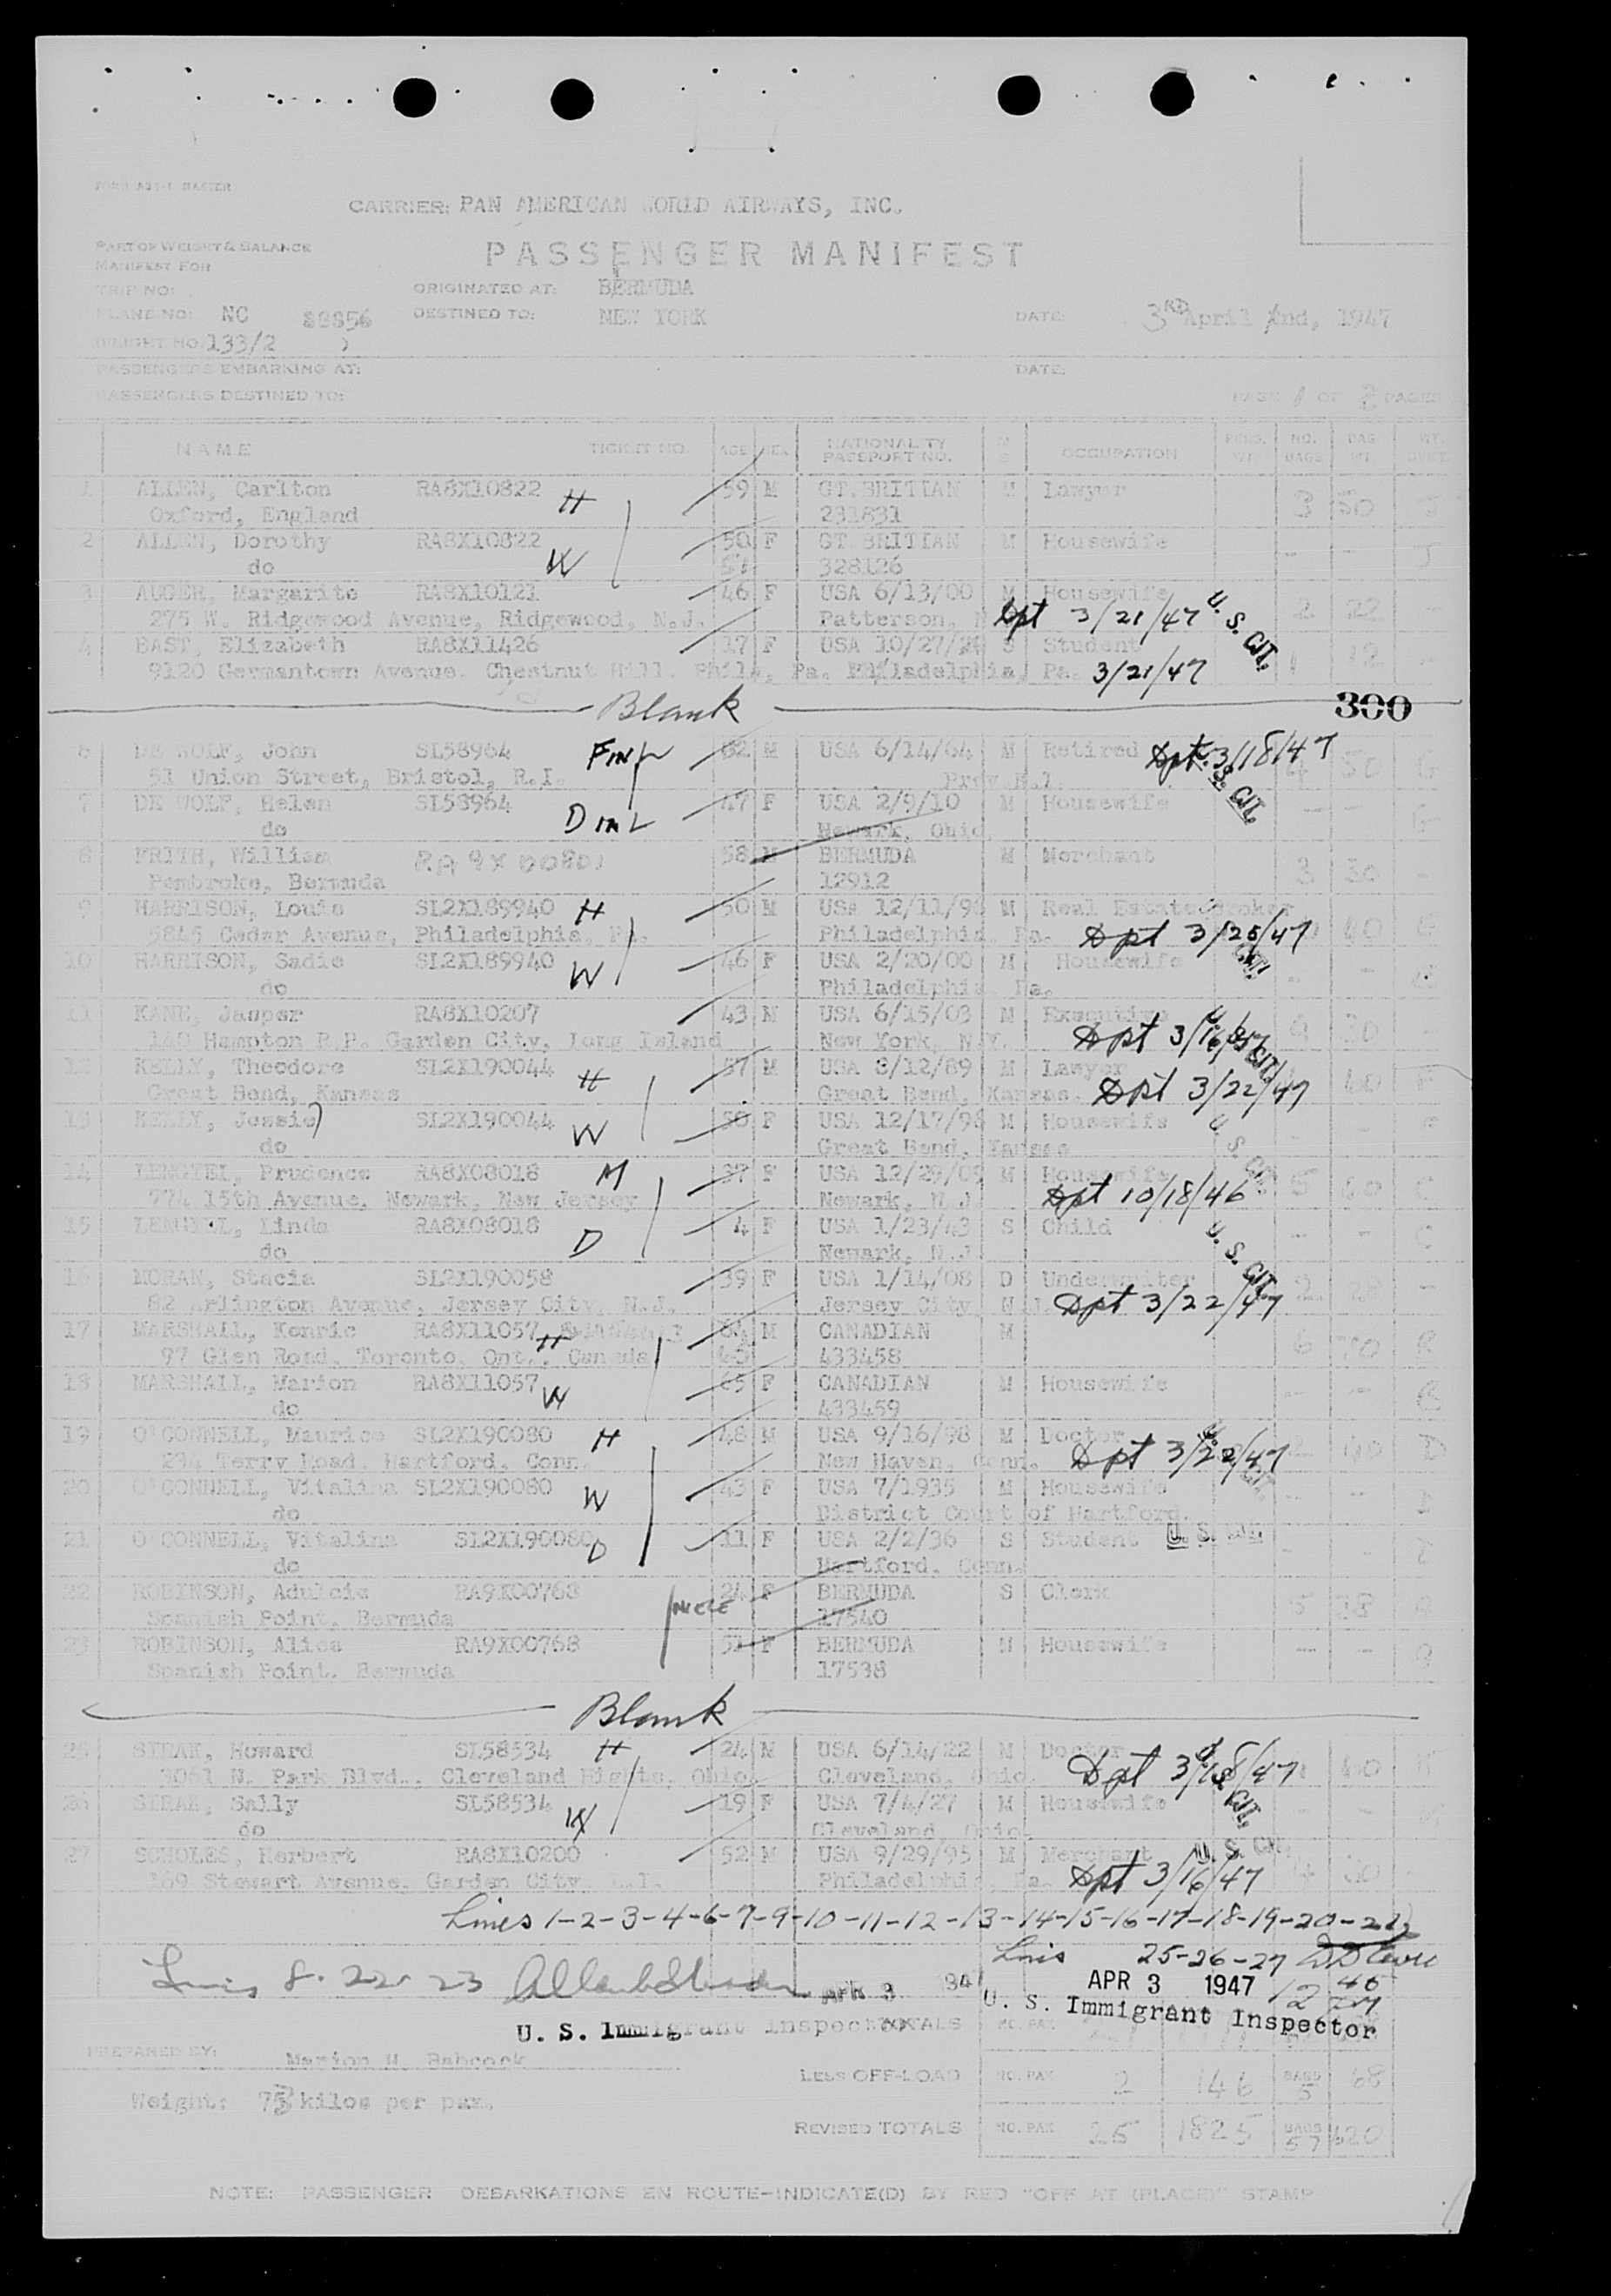 FORM A21-1 MASTER
CARRIER: PAN AMERICAN WORLD AIRWAYS, INC.
PART OF WEIGHT & BALANCE
MANIFEST FOR
PASSENGER MANIFEST
TRIP NO: ORIGINATED AT: BERMUDA
PLANE NO: NC 88856 DESTINED TO: NEW YORK DATE: 3RD April 2nd, 1947
FLIGHT NO. 133/2
PASSENGERS EMBARKING AT: DATE:
PASSENGERS DESTINED TO: PAGE 1 OF PAGES
NAME TICKET NO. AGE SEX NATIONALITY PASSPORT NO. M S OCCUPATION PERS. WT. NO. BAGS BAG WT.
1 ALLEN, Carlton RA8X10822 H 59 M GT.BRITIAN M Lawyer 3 50 J
Oxford, England 231831
2 ALLEN, Dorothy RA8X10822 W 50 F GT BRITIAN M Housewife - - J
do 51 328126
3 AUGER, Margarite RA8X10121 46 F USA 6/13/00 M Housewife 2 22
275 W. Ridgewood Avenue, Ridgewood, N.J. Patterson, N Dpt 3/21/47 U. S. CIT.
4 BAST, Elizabeth RA8X11426 17 F USA 10/27/29 S Student 1 12 -
9120 Germantown Avenue. Chestnut Hill. Phila, Pa. Philadelphia, Pa. 3/21/47
Blank 300
6 DE WOLF, John SL58964 82 M USA 6/14/64 M Retired Dpt. 3/18/47 4 50 G
51 Union Street, Bristol, R.I. Prov.R.I. U. S. CIT.
7 DE WOLF, Helen SL58964 D in L 47 F USA 2/9/10 M Housewife - - G
do Newark, Ohio
8 FRITH, William RA 9X 00801 58 M BERMUDA M Merchant 3 30 -
Pembroke, Bermuda 12912
9 HARRISON, Louis SL2X189940 H 50 M USA 12/11/96 M Real Estate Broker 40
5845 Cedar Avenue, Philadelphia, Pa. Philadelphia, Pa. Dpt 3/25/47
10 HARRISON, Sadie SL2X189940 W 46 F USA 2/20/00 M Housewife CIT. - -
do Philadelphia, Pa.
11 KANE, Jasper RA8X10207 43 M USA 6/15/03 M Executive 30 -
140 Hampton R.P. Garden City, Long Island New York, N.Y. Dpt 3/16/47
12 KELLY, Theodore SL2X190044 H 57 M USA 8/12/89 M Lawyer 40 F
Great Bend, Kansas Great Bend, Kansas. Dpt 3/22/47
13 KELLY, Jessie SL2X190044 W 50 F USA 12/17/96 M Housewife - - F
do Great Bend, Kansas U S CIT.
14 LENGYEL, Prudence RA8X08018 M 37 F USA 12/29/09 M Housewife 5 60 C
774 15th Avenue, Newark, New Jersey Newark, N J Dpt 10/18/46
15 LENGYEL, Linda RA8X08018 D 4 F USA 1/23/43 S Child - - C
do Newark, N.J U. S. CIT.
16 MORAN, Stacia SL2X190058 39 F USA 1/14/08 D Underwriter 2 28 -
82 Arlington Avenue, Jersey City, N.J. Jersey City N J Dpt 3/22/47
17 MARSHALL, Kenric RA8X11057 H 64 M CANADIAN M 6 70 R
97 Glen Road, Toronto, Ont., Canada 433458
18 MARSHALL, Marion RA8X11057 W 65 F CANADIAN M Housewife - - R
do 433459
19 O'CONNELL, Maurice SL2X190080 H 48 M USA 9/16/98 M Doctor 40 D
234 Terry Road, Hartford, Conn. New Haven, Conn. Dpt 3/22/47
20 O'CONNELL, Vitalina SL2X190080 W 43 F USA 7/1935 M Housewife - - D
do District Court of Hartford.
21 O'CONNELL, Vitalina SL2X190080 D 11 F USA 2/2/36 S Student U. S. CIT. - - D
do Hartford. Conn.
22 ROBINSON, Adulcie RA9X00768 24 F BERMUDA S Clerk 5 38 Q
Spanish Point, Bermuda NIECE 17540
23 ROBINSON, Alice RA9X00768 51 F BERMUDA M Housewife - - Q
Spanish Point. Bermuda 17538
Blank
25 SIRAK, Howard SL58534 H 24 M USA 6/14/22 M Doctor 40
3061 N. Park Blvd., Cleveland Hights, Ohio. Cleveland, Ohio. Dpt 3/18/47
26 SIRAK, Sally SL58534 W 19 F USA 7/4/27 M Housewife CIT. - -
do Cleveland, Ohio
27 SCHOLES, Herbert RA8X10200 52 M USA 9/29/95 M Merchant U. S. CIT. 4 30 -
169 Stewart Avenue, Garden City. L.I. Philadelphia, Pa. Dpt 3/16/47
Lines 1-2-3-4-6-7-9-10-11-12-13-14-15-16-17-18-19-20-21
Lines 25-26-27
Lines 8. 22. 23 APR 3 1947 APR 3 1947
U. S. Immigrant Inspector TOTALS NO. PAX U. S. Immigrant Inspector
PREPARED BY: Marion H. Babcock
LESS OFF-LOAD NO. PAX 2 146 BAGS 5 68
Weight: 73 kilos per pax.
REVISED TOTALS NO. PAX 25 1825 BAGS 57 620
NOTE: PASSENGER DEBARKATIONS EN ROUTE-INDICATE(D) BY RED "OFF AT (PLACE)" STAMP